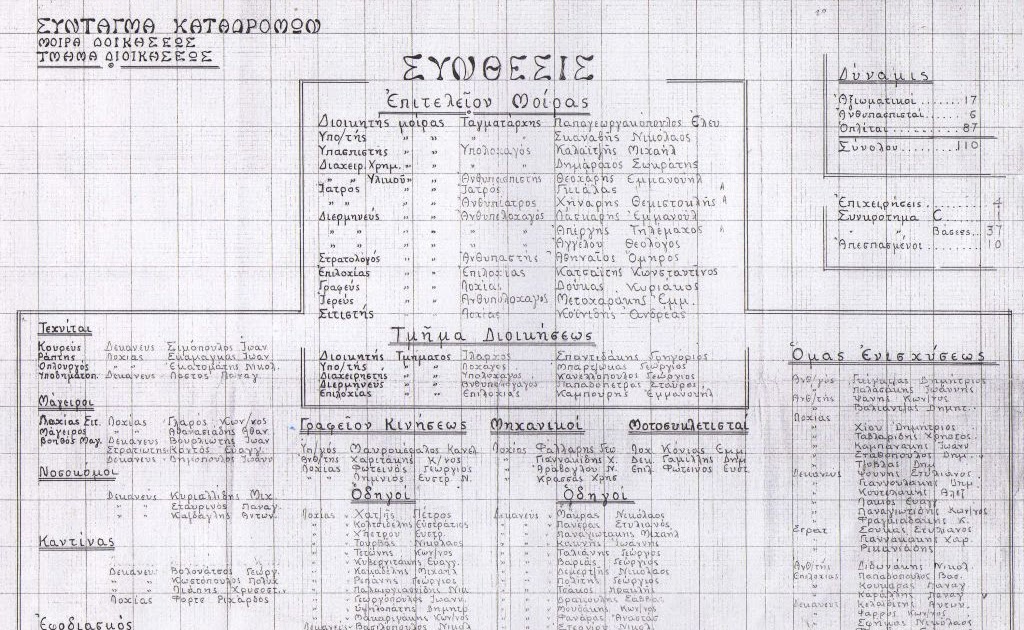 ΣΥΝΤΑΓΜΑ ΚΑΤΑΔΡΟΜΩΝ
ΜΟΙΡΑ ΔΟΙΚΗΣΕΩΣ
ΤΜΗΜΑ ΔΙΟΙΚΗΣΕΩΣ
ΣΥΝΘΕΣΙΣ
Ἐπιτελεῖον Μοίρας
Διοικητής μοίρας Ταγματάρχης Παπαγεωργακόπουλος Ἐλευ
Υπο/τής " " " Σκαναβής Νικόλαος
Υπασπιστής " " Υπολοχαγός Καλαϊτζῆς Μιχαήλ
Διαχειρ. Χρημ. " " " Δημάρατος Σωκράτης
" " Υλικοῦ " " Ἀνθυπασπιστής Θεοχάρης Εμμανουήλ
Ἰατρός " " Ἰατρός
" " " " Ἀνθυπίατρος Χήναρης Θεμιστοκλῆς
Διερμηνεύς " " Ἀνθυπολοχαγός Λάσκαρης Ἐμμανουήλ
" " " " Ἀπέργης Τηλέμαχος
" " " " Ἀγγέλου Θεολόγος
Στρατολόγος " " Ἀνθυπαστής Ἀθηναῖος Ὅμηρος
Επιλοχίας " " Ἐπιλοχίας Κατσαΐτης Κωνσταντῖνος
Γραφεύς " " Λοχίας Δούκας Κυριακός
Ἱερεύς " " Ἀνθυπολοχαγός Μεταχαράκης Ἐμμ.
Σιτιστής " " Λοχίας Κοϊνίδης Ἀνδρέας
Δύναμις
Ἀξιωματικοί 17
Ἀνθυπασπισταί 6
Ὁπλῖται 87
Σύνολον 110
Ἐπιχειρήσεις 4
Συνυρότημα C 1
" " Βάσεως 37
Ἀπεσπασμένοι 10
Τμῆμα Διοικήσεως
Διοικητής Τμήματος Ἴλαρχος Σπαντιδάκης Γρηγόριος
Υπο/τής " Λοχαγός Μπαρτζώκας Γεώργιος
Διαχειριστής " Υπολοχαγός Κανελλόπουλος Γεώργιος
Διερμηνεύς " Ἀνθυπολοχαγός Παπαδόπετρας Σταῦρος
Επιλοχίας " Επιλοχίας Καμπούρης Ἐμμανουήλ
Τεχνῖται
Κουρεύς Δεκανεύς Σιμόπουλος Ἰωαν
Ράπτης Λοχίας Σκαμάγκας Ἰωαν
Ὁπλουργός " Νικολ.
Υποδηματοπ. Δεκανεύς Λάστος Παναγ
Μάγειροι
Λοχίας Σιτ. Λοχίας Γλάρος Κων/νος
Μάγειρος " Ἀθανασιάδης Ἀθαν.
Βοηθός Μαγ. Δεκανεύς Βουρλιώτης Ἰωαν
Στρατιώτης Κόντος Εὐαγγ.
Δεκανεύς Δημόπουλος Ἰωάνν
Νοσοκόμοι
Δεκανεύς Κυριαλλίδης Μιχ.
" " Σταυρινός Παναγ.
" " Καβδαγλῆς Ἀντων.
Καντίνας
Δεκανεύς Βολονάτσος Γεώργ.
" " Κωστόπουλος Πολυχ
" " Χρυσοστ.
Λοχίας Φόρτε Ριχάρδος
Ἐφοδιασμός
Γραφεῖον Κινήσεως
Υπ/γός Μαυροκέφαλος Κανελ.
Ἀνθ/της Χαρίτακης Κ/νος
Λοχίας Φωτεινός Γεώργιος
" Λήμνιος Εὐστρ. Ν.
Ὁδηγοί
Λοχίας " Χατ/ῆς Πέτρος
" " Κολτσιδέλης Εὐστράτιος
" " Χπέτρου Εὐστρ.
" " Τούρβας Νικόλαος
" " Τετώνης Κων/νος
" " Κυβερνιτάκης Εὐαγγ.
" " Καναδέλης Μιχαήλ
" " Ρεπάνης Γεώργιος
" " Παλαιολογανίδης Νικ.
" " Γεωργόπουλος Ἰωανν.
" " Υψηλοπάτης Δημητρ
" " Μακαρίγακης Κων/νος
Δεκανεύς Βασιλόπουλος Νικολ
Μηχανικοί
Λοχίας Φαλλάρης Στ.
" " Γιαννακίδης Χ.
" " Ἀράβογλου Ν.
" " Κρασσᾶς Χρῆσ
Ὁδηγοί
Δεκανεύς " Μαύρας Νικόλαος
" " Πανέρας Στυλιανός
" " Παναγιωτάκης Μιχαήλ
" " Κακνῆς Ἰωάννης
" " Ταλιάνης Γεώργος
" " Βαρίας Γεώργιος
" " Δεμερτζῆς Νικόλαος
" " Πολίτης Γεώργιος
" " Τσάκος Ἡρακλῆς
" " Σάββας
" " Μουδάκης Κων/νος
" " Φανάρας Ἀναστάς
" " Στερνίου Νικολ
Μοτοσυκλετισταί
Λοχ Κόνιας Εμμ.
Δεκ Γαμίλης Δημ
Ἐπιλ Φωτεινος Εὐστ
Ὁμάς Ἐνισχύσεως
Ἀνθ/γός Δημήτριος
" Παλάσκας Ἰωάννης
Ἀνθ/τής Ψάνης Κων/νος
" Βαλιάντζας Δημητ.
Λοχίας
" Χίου Δημήτριος
" Ταβλαρίδης Χρῆστος
" Καμπανάκης Ἰωάνν
" Σταθόπουλος Δημ
" Τζόβλας Δημ
Δεκανεύς Ψούνης Στυλιανός
" Γιαννουλάκης Δημ.
" Κουτελάκης Ἀλεξ
" Λάμος Εὐαγγ
" Παναγιωτίδης Κων/νος
" Φραγκιαδάκης Κ.
Στρατ Σούκας Στυλιανός
" Γιαννακούρης Χαρ.
" Ρεκανιάδης
Ἀνθ/τής Διδυνάκης Νικολ.
Επιλοχίας Παπαδόπουλος Βασ.
" Κουκάρας Παναγ
" Παναγ
Δεκανεύς Κελαϊδίτης Ἀντων.
" Φάρρος Κων/νος
" Σωτήκας Νικόλαος